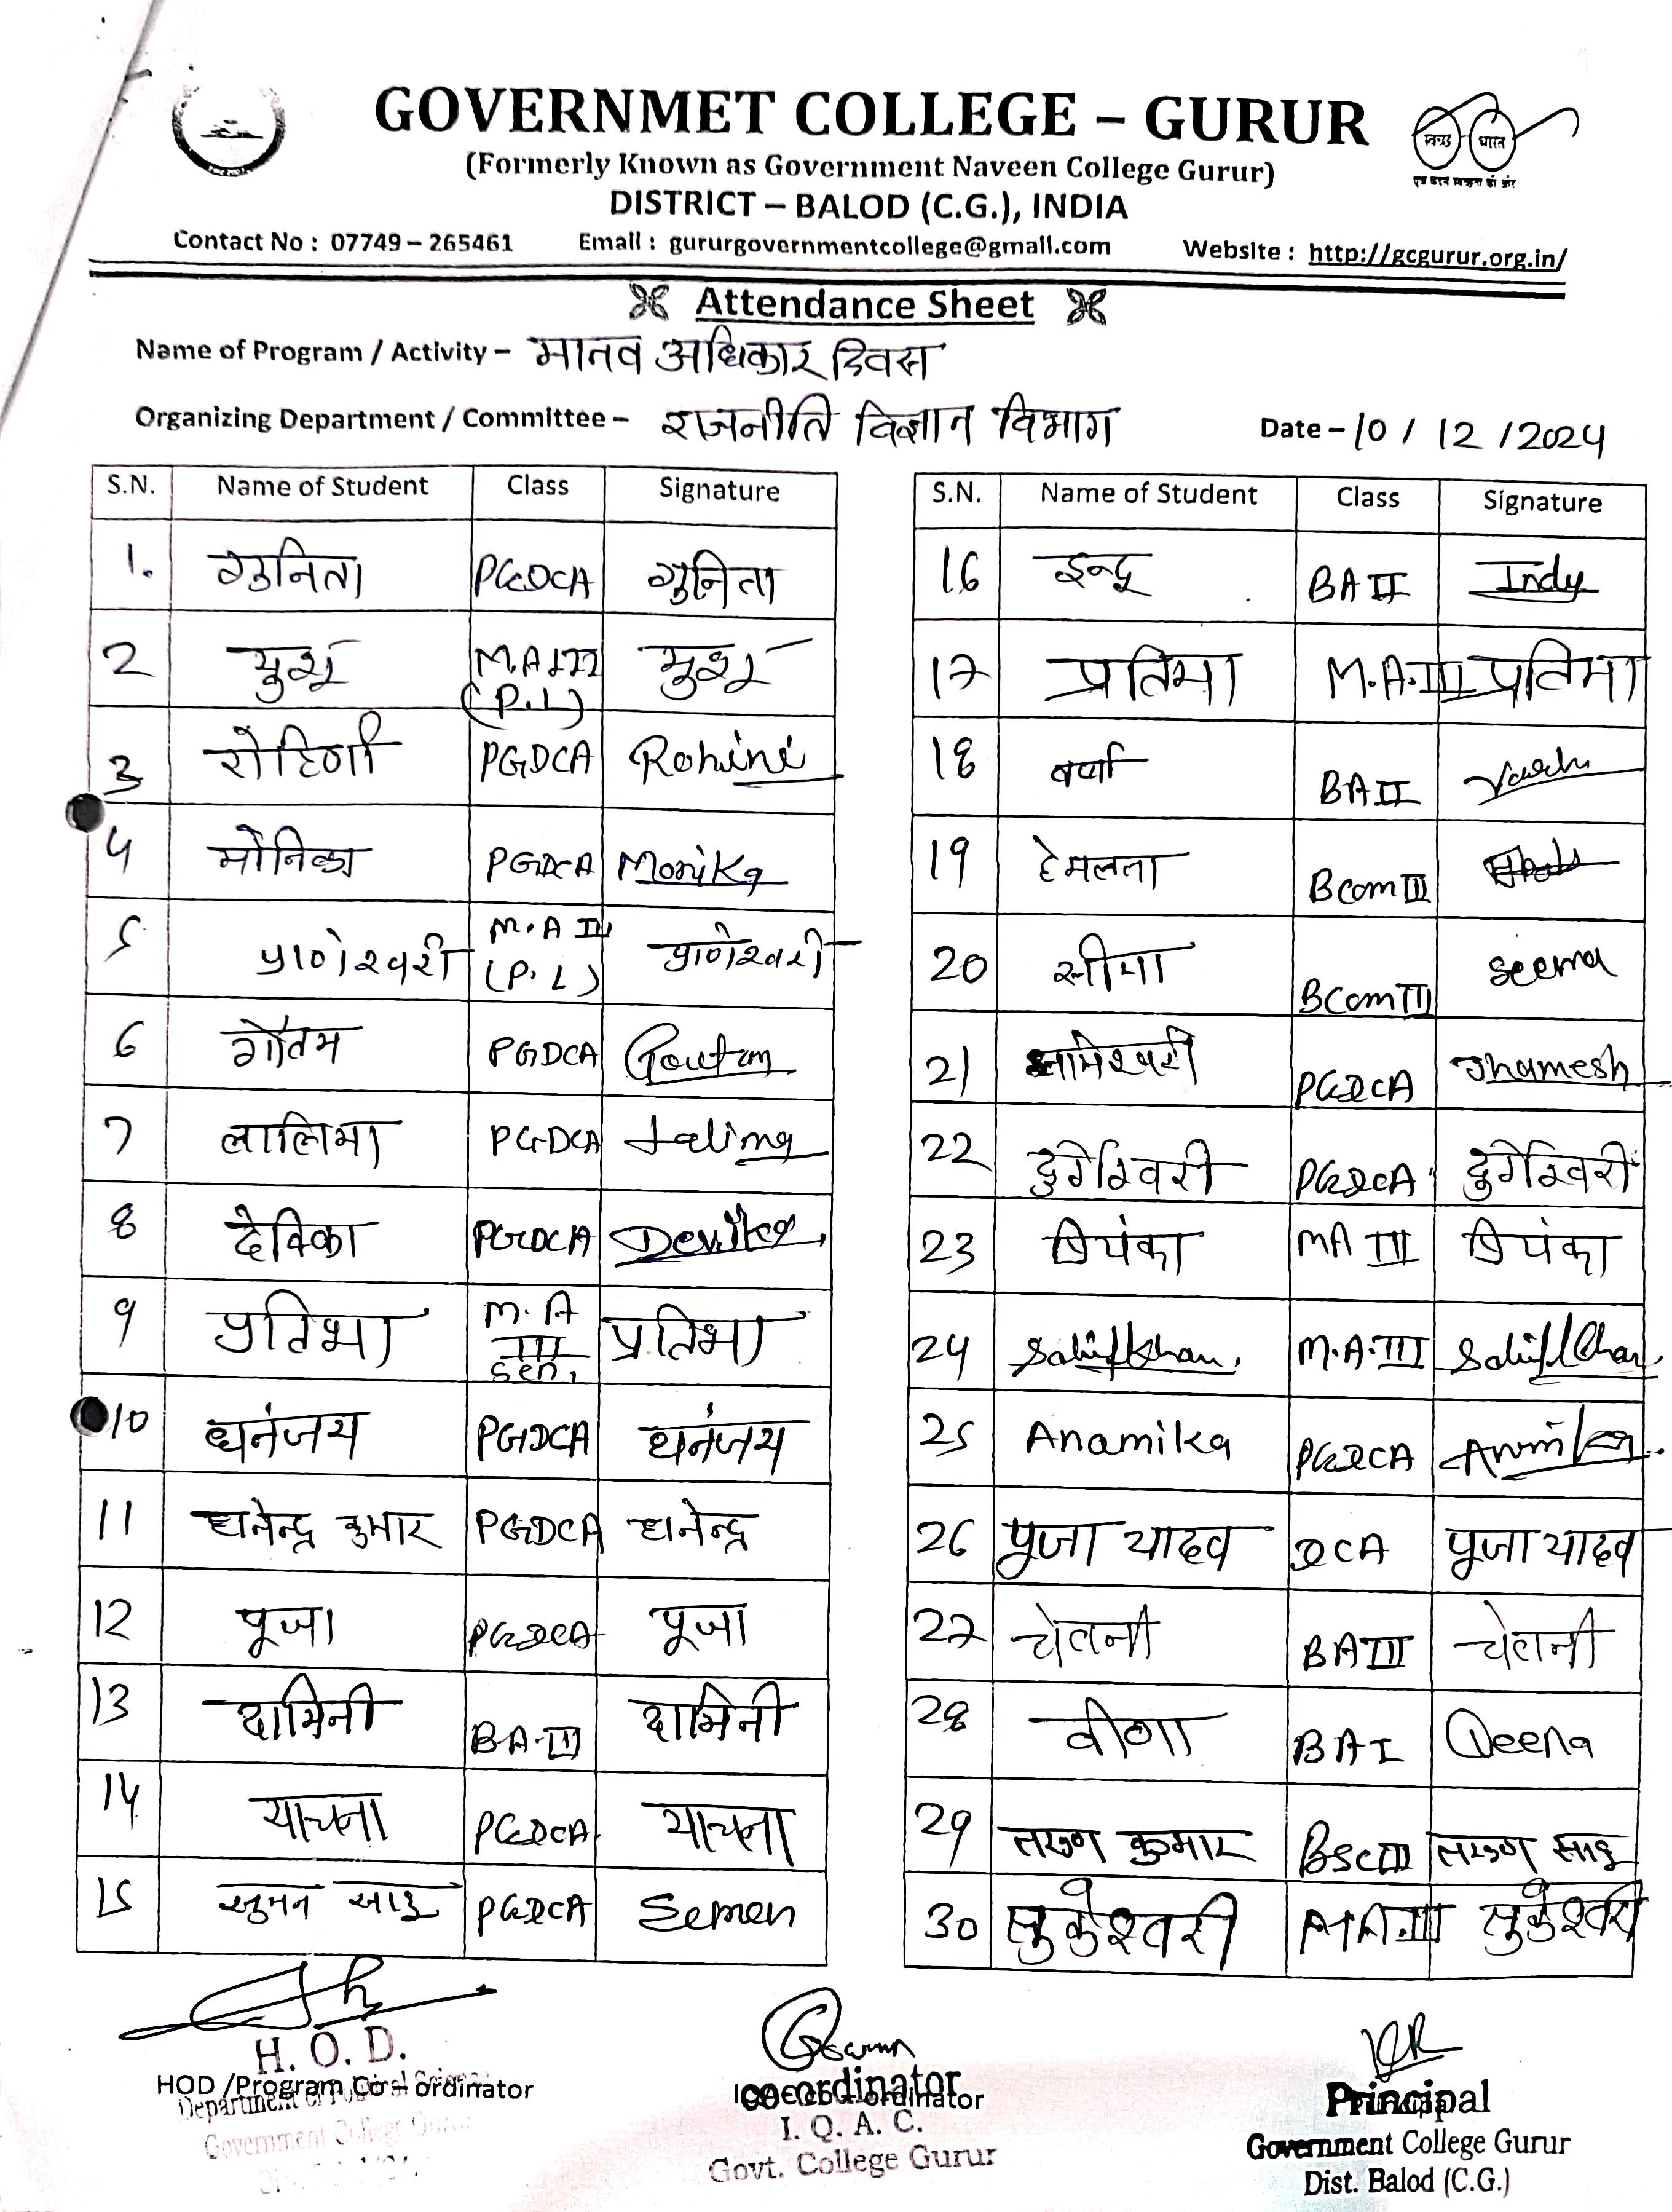 GOVERNMET COLLEGE – GURUR
(Formerly Known as Government Naveen College Gurur)
स्वच्छ भारत
DISTRICT – BALOD (C.G.), INDIA
Contact No : 07749 – 265461 Email : gururgovernmentcollege@gmail.com Website : http://gcgurur.org.in/
Attendance Sheet
Name of Program / Activity – मानव अधिकार दिवस
Organizing Department / Committee – राजनीति विज्ञान विभाग Date – 10 / 12 / 2024
S.N. Name of Student Class Signature
1. गुनिता PGDCA गुनिता
2 M.A III (P.L)
3 रोहिणी PGDCA Rohini
4 मोनिका PGDCA Monika
5 प्राणेश्वरी M.A III (P.L) प्राणेश्वरी
6 गौतम PGDCA Goutam
7 लालिमा PGDCA Lalima
8 देविका PGDCA Devika
9 प्रतिभा M.A III Sen. प्रतिभा
10 धनंजय PGDCA धनंजय
11 धनेन्द्र कुमार PGDCA धनेन्द्र
12 पूजा PGDCA पूजा
13 दामिनी BA-III दामिनी
14 याचना PGDCA याचना
15 सुमन साहू PGDCA Semen
S.N. Name of Student Class Signature
16 इन्दू BA II Indu
17 प्रतिमा M.A.III प्रतिमा
18 वर्षा BA II
19 हेमलता Bcom III
20 सीमा BCom III Seema
21 PGDCA Jhamesh
22 दुर्गेश्वरी PGDCA दुर्गेश्वरी
23 प्रियंका MA III प्रियंका
24 M.A.III
25 Anamika PGDCA Anamika
26 पूजा यादव DCA पूजा यादव
27 चेतनी BA III चेतनी
28 वीणा BA I Veena
29 तरुण कुमार BSc III तरुण साहू
30 सुकेश्वरी सुकेश्वरी
H. O. D.
HOD /Program Co – ordinator
Department of Political Science
Government College Gurur
co-ordinator
I. Q. A. C.
Govt. College Gurur
Principal
Government College Gurur
Dist. Balod (C.G.)